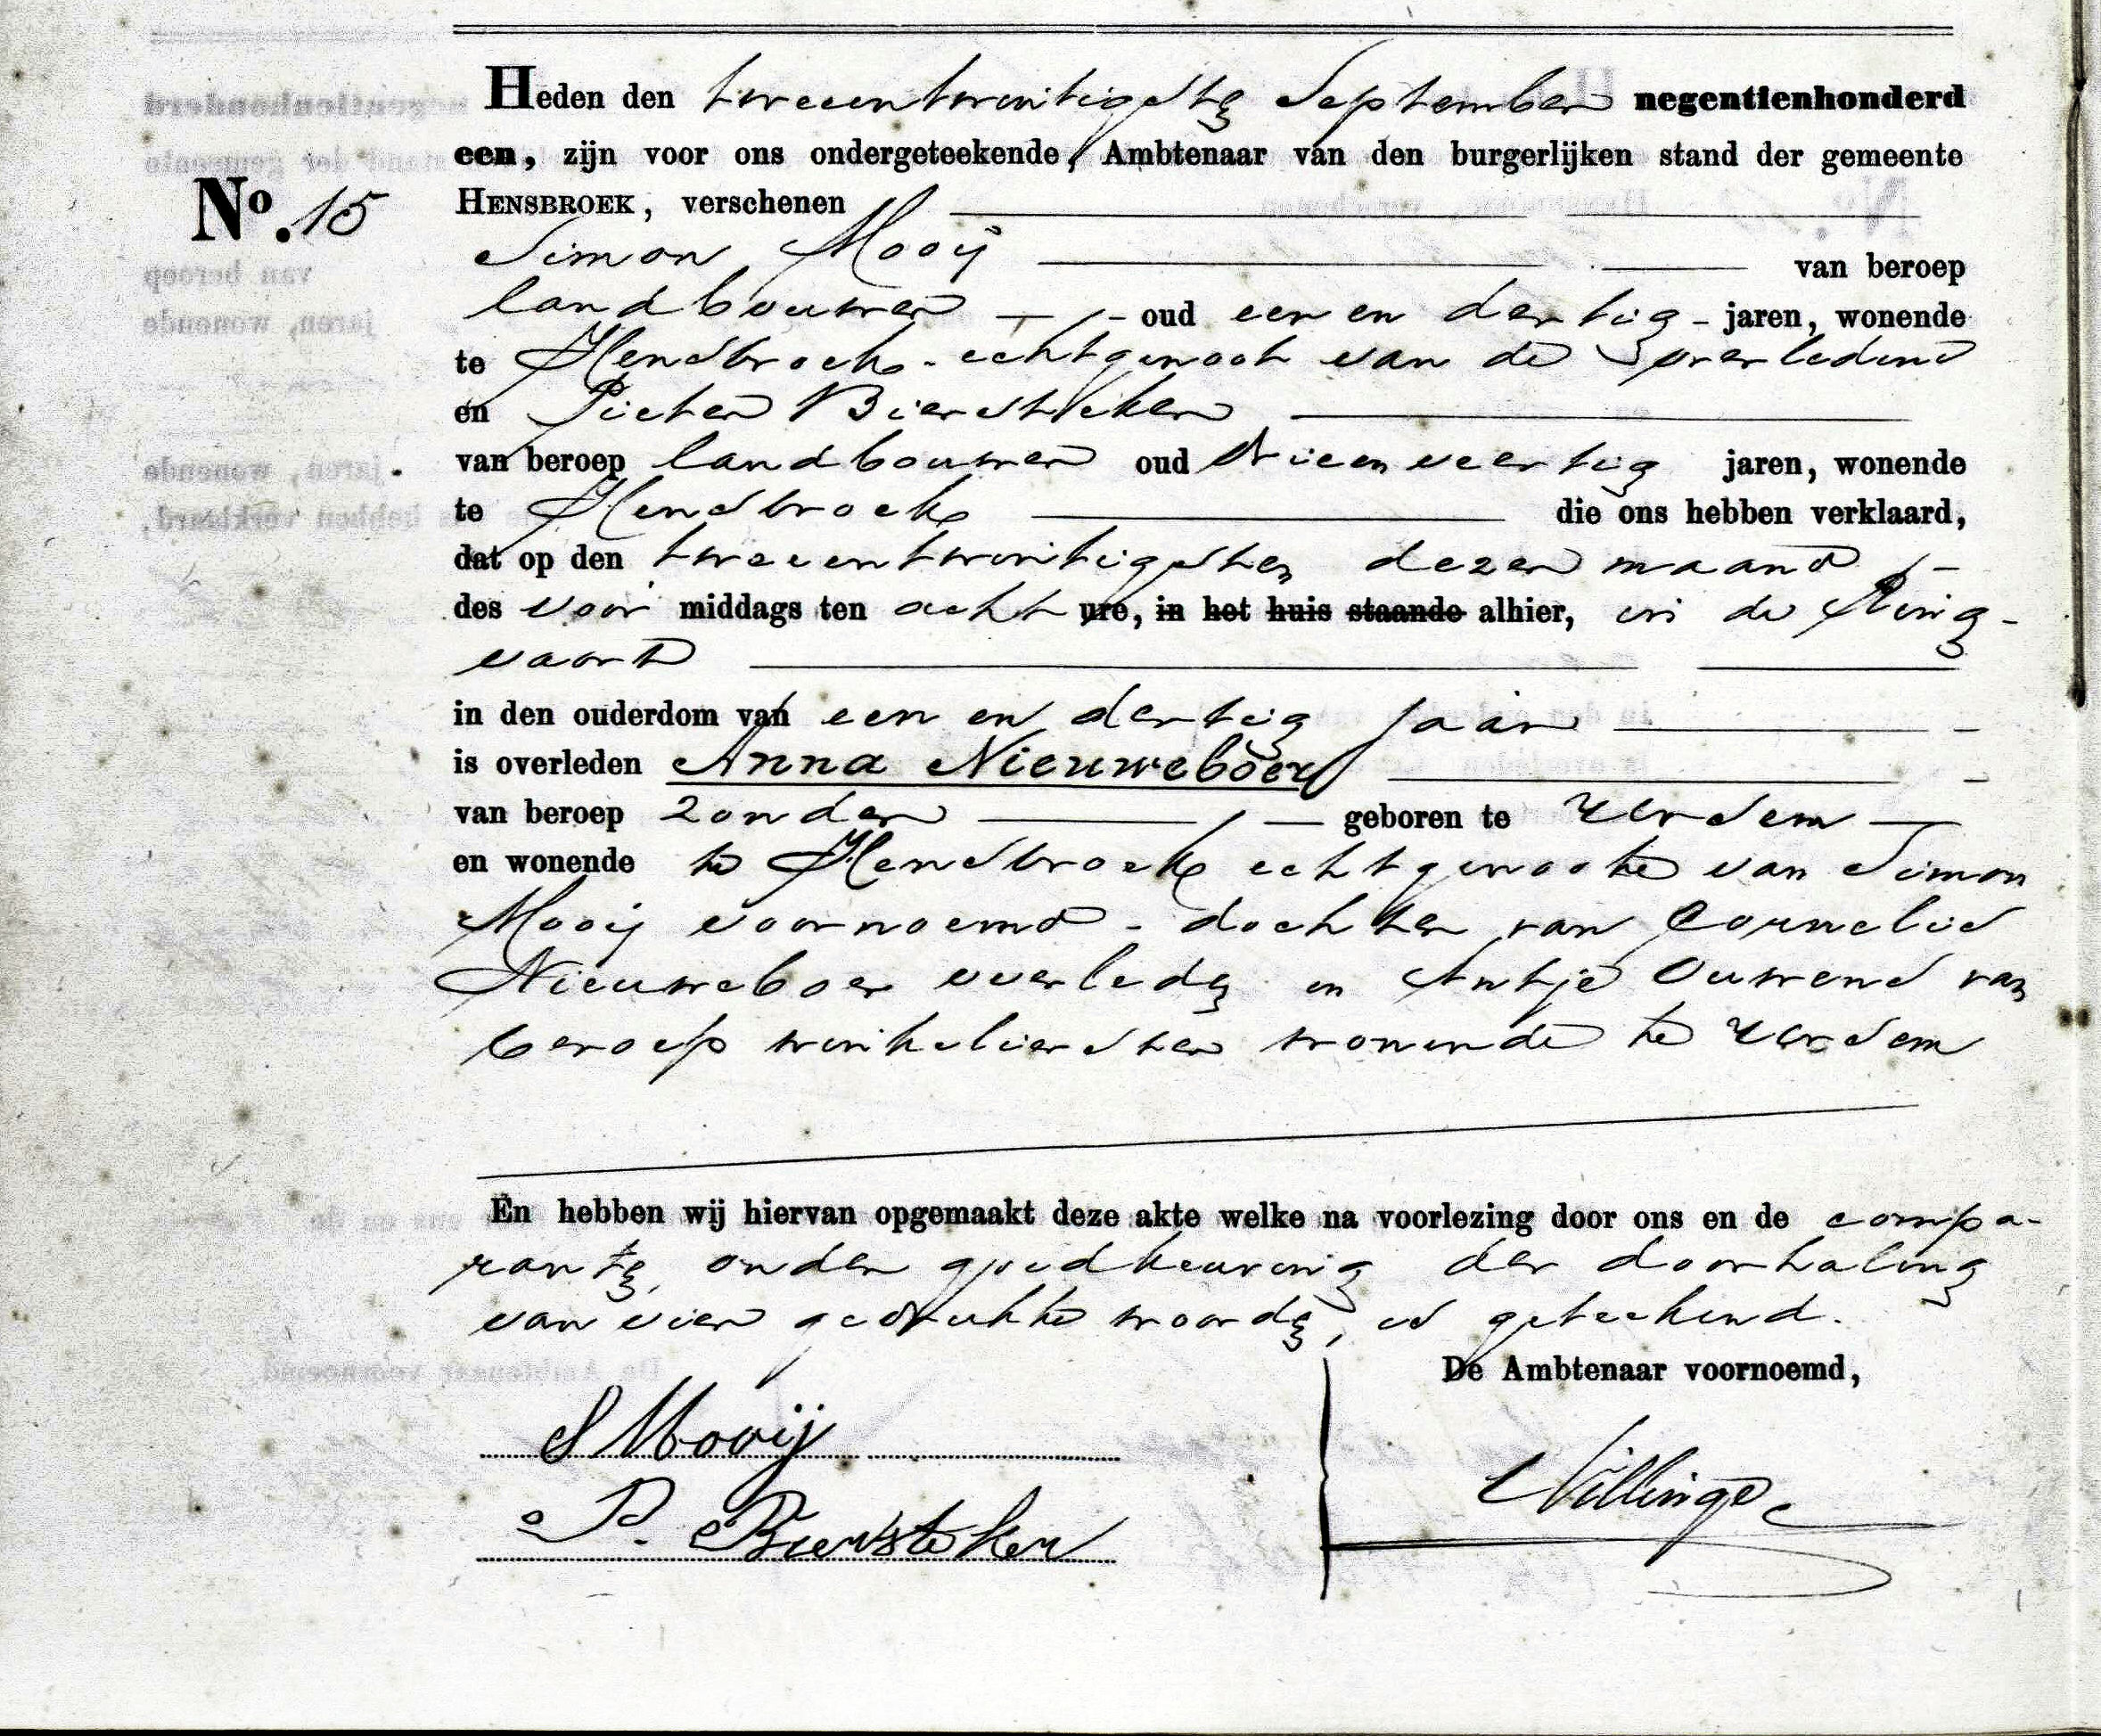 Heden den tweeentwintigste September negentienhonderd
een, zijn voor ons ondergeteekende, Ambtenaar van den burgerlijken stand der gemeente
No. 15
HENSBROEK, verschenen
Simon Mooij van beroep
landbouwer oud een en dertig jaren, wonende
te Hensbroek echtgenoot van de overledene
en Pieter Biersteker
van beroep landbouwer oud drieenveertig jaren, wonende
te Hensbroek die ons hebben verklaard,
dat op den tweeentwintigsten dezer maand
des voor middags ten acht ure, in het huis staande alhier, in de Ring-
vaart
in den ouderdom van een en dertig jaar
is overleden Anna Nieuweboer
van beroep zonder geboren te Ursem
en wonende te Hensbroek echtgenoote van Simon
Mooij voornoemd - dochter van Cornelis
Nieuweboer overleden en Antje Ouwens van
beroep winkelierster wonende te Ursem
En hebben wij hiervan opgemaakt deze akte welke na voorlezing door ons en de compa-
ranten, onder goedkeuring der doorhaling
van vier gedrukte woorden, is geteekend.
De Ambtenaar voornoemd,
S Mooij
P. Biersteker